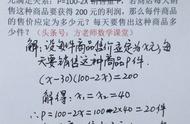 元满足关系：P=100-2X 销售若商店每天销售
这种商品要获得200元的利润，那么每件商品
的售价应定为多少元？每天要售出这种商品多
少件？（头条号：方老师数学课堂）
解：设每件商品售价应定为x元，每
天要销售这种商品p件．
(x-30)(100-2x)=200
解得：x₁=x₂=40
∴P=100-2x=100-2×40=20件